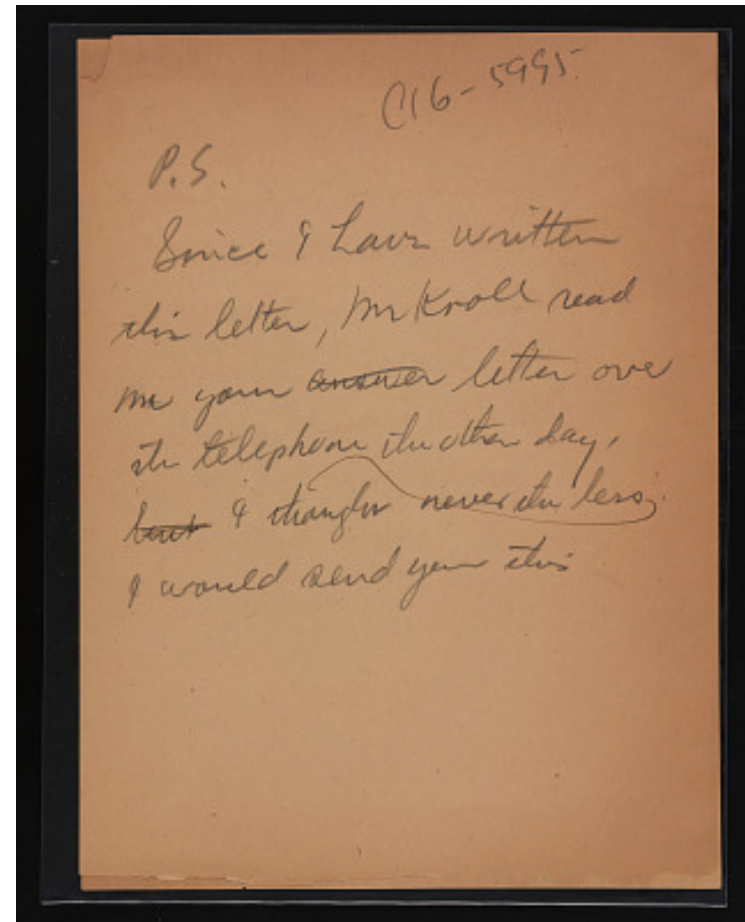 C16-5995
P.S.
Since I have written
this letter, Mr Kroll read
me your answer letter over
the telephone the other day,
but I thought never the less,
I would send you this